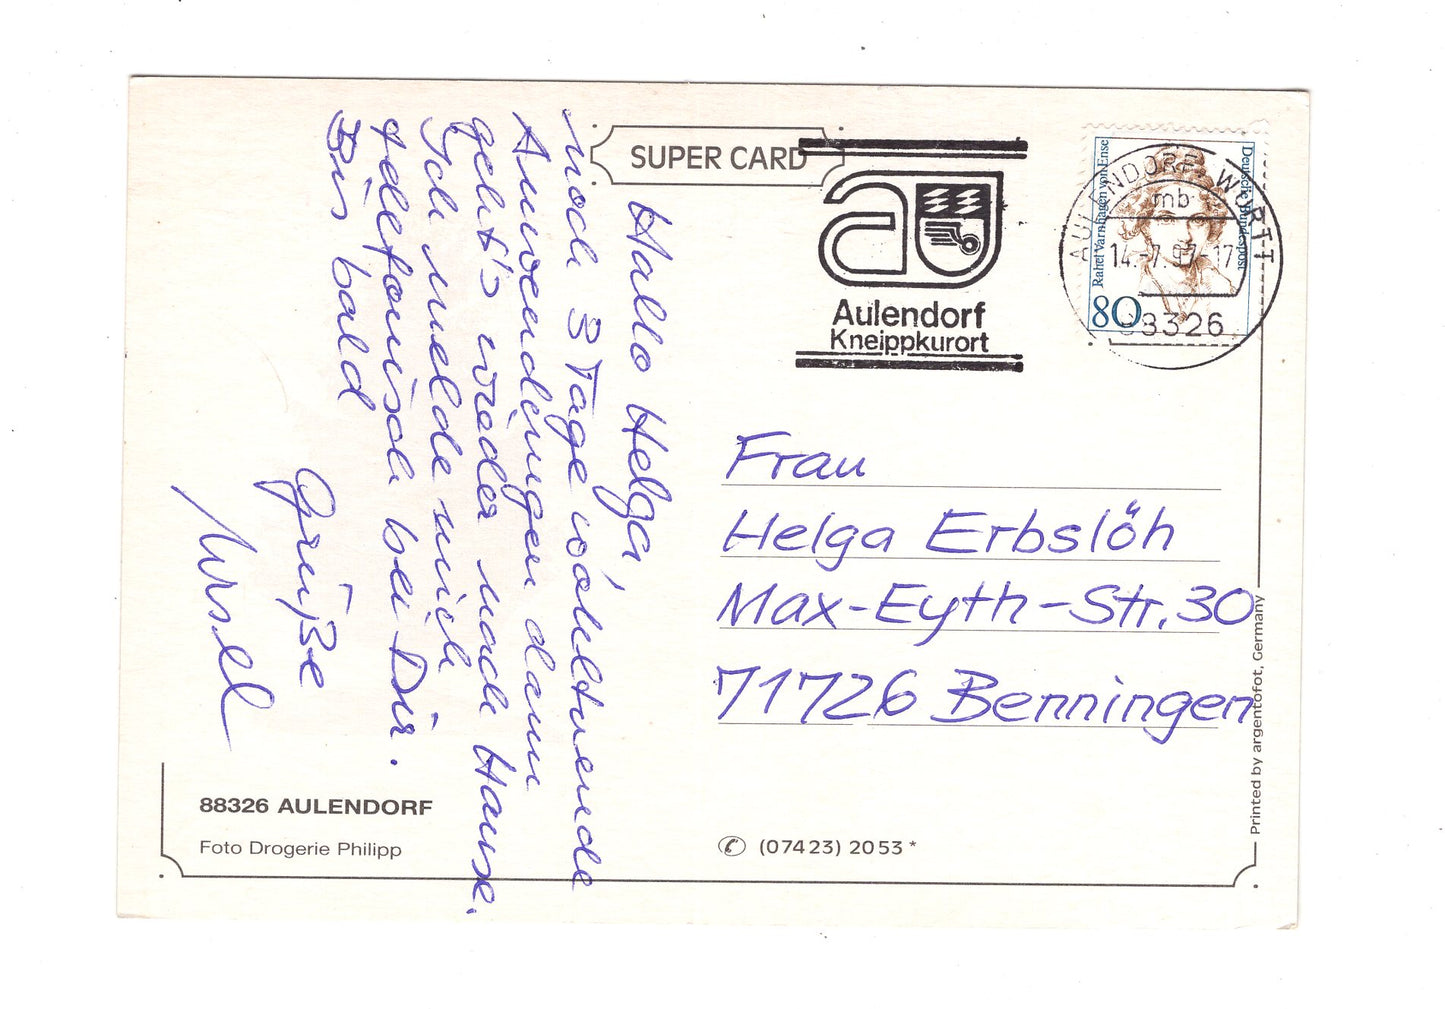 SUPER CARD
Aulendorf
Kneippkurort
Rahel Varnhagen von Ense
Deutsche Bundespost
80
AULENDORF, WÜRTT
mb
14.-7.97-17
88326
Hallo Helga,
noch 3 Tage wohltuende
Anwendungen dann
geht's wieder nach Hause.
Ich melde mich
telefonisch bei Dir.
Bis bald
Grüße
Ursel
Frau
Helga Erbslöh
Max-Eyth-Str. 30
71726 Benningen
88326 AULENDORF
Foto Drogerie Philipp
(07423) 2053 *
Printed by argentofot, Germany